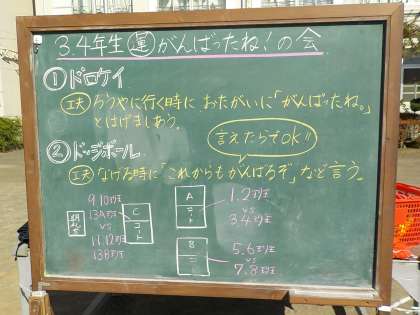 3.4年生 運 がんばったね！の会
① ドロケイ
工夫 ろうやに行く時に おたがいに「がんばったね。」
とはげましあう。
言えたらでOK!!
② ドッジボール
工夫 なげる時に「これからもがんばるぞ」など言う。
9.10班
13A班
VS
11.12班
13B班
C
コート
A
コート
1.2班
VS
3.4班
B
コート
5.6班
VS
7.8班